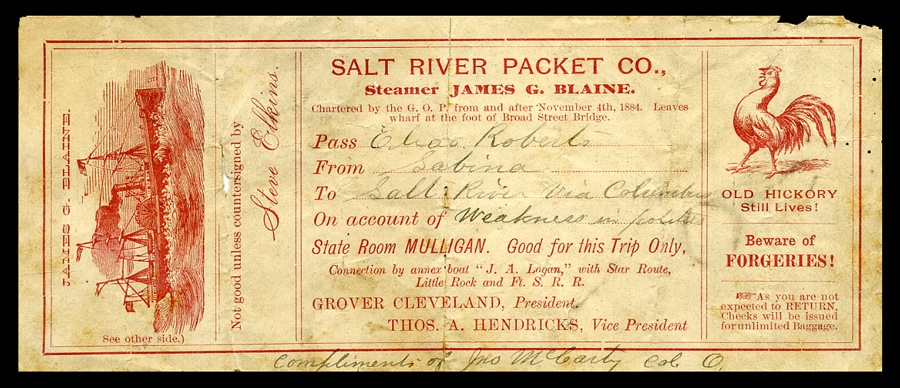 JAMES G. BLAINE.
See other side.)
Not good unless countersigned by
Steve Elkins.
SALT RIVER PACKET CO.,
Steamer JAMES G. BLAINE.
Chartered by the G. O. P. from and after November 4th, 1884. Leaves
wharf at the foot of Broad Street Bridge.
Pass Chas. Roberts
From Sabina
To Salt River Via Columbus
On account of Weakness in politics
State Room MULLIGAN. Good for this Trip Only,
Connection by annex boat "J. A. Logan," with Star Route,
Little Rock and Ft. S. R. R.
GROVER CLEVELAND, President.
THOS. A. HENDRICKS, Vice President
OLD HICKORY
Still Lives!
Beware of
FORGERIES!
As you are not
expected to RETURN,
Checks will be issued
for unlimited Baggage.
Compliments of Jno McCarty Col O.